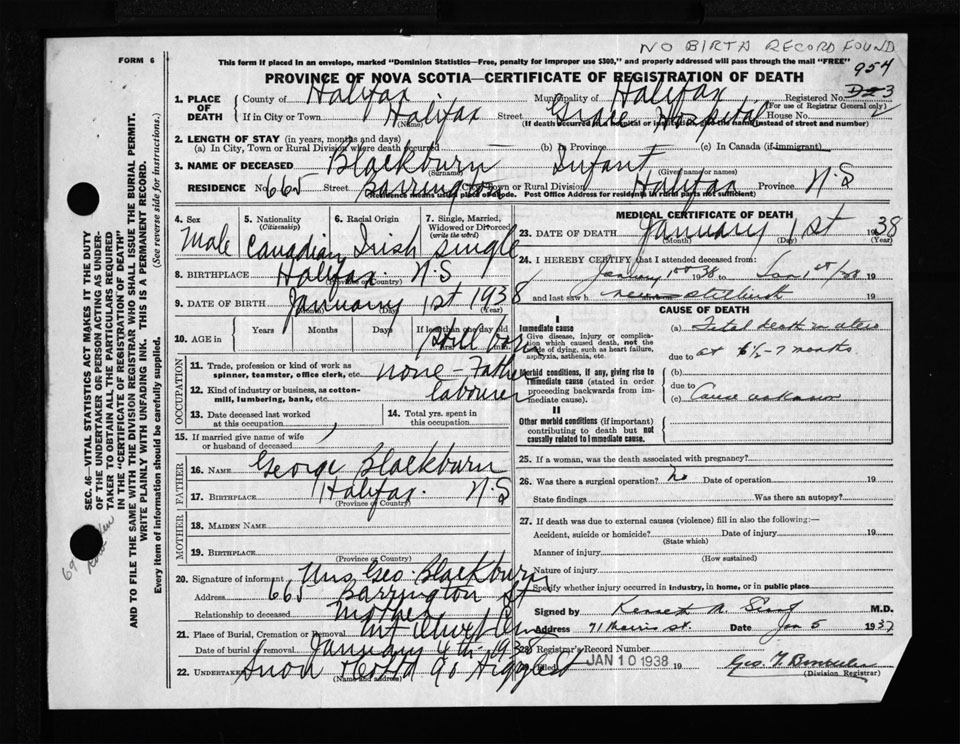 NO BIRTH RECORD FOUND
FORM 6
This form if placed in an envelope, marked "Dominion Statistics—Free, penalty for improper use $300," and properly addressed will pass through the mail "FREE"
954
PROVINCE OF NOVA SCOTIA—CERTIFICATE OF REGISTRATION OF DEATH
1. PLACE OF DEATH
County of Halifax Municipality of Halifax Registered No.
(For use of Registrar General only)
If in City or Town Halifax Street Grace Hospital House No.
(Name) (If death occurred in a hospital or institution, give the name instead of street and number)
2. LENGTH OF STAY (in years, months and days)
(a) In City, Town or Rural Division where death occurred (b) In Province (c) In Canada (if immigrant)
3. NAME OF DECEASED Blackburn Infant
(Surname) (Given name or names)
RESIDENCE No 665 Street Barrington City, Town or Rural Division Halifax Province N.S
(Residence means usual place of abode. Post Office Address for residents in rural parts not sufficient)
4. Sex
Male
5. Nationality
(Citizenship)
Canadian
6. Racial Origin
Irish
7. Single, Married, Widowed or Divorced
(write the word)
single
8. BIRTHPLACE Halifax N.S
(Province or Country)
9. DATE OF BIRTH January 1st 1938
(Month) (Day) (Year)
10. AGE in
Years Months Days If less than one day old
hrs.
Still born
OCCUPATION
11. Trade, profession or kind of work as spinner, teamster, office clerk, etc. none - Father
12. Kind of industry or business, as cotton-mill, lumbering, bank, etc. labourer
13. Date deceased last worked at this occupation
14. Total yrs. spent in this occupation
15. If married give name of wife or husband of deceased
FATHER
16. NAME George Blackburn
17. BIRTHPLACE Halifax. N.S
(Province or Country)
MOTHER
18. MAIDEN NAME
19. BIRTHPLACE
(Province or Country)
20. Signature of informant Mrs Geo Blackburn
Address 665 Barrington St
Relationship to deceased Mother
21. Place of Burial, Cremation or Removal Mt Olivet Cem
Date of burial or removal January 4th 1938
22. UNDERTAKER Snow
(Name and address)
MEDICAL CERTIFICATE OF DEATH
23. DATE OF DEATH January 1st 1938
(Month) (Day) (Year)
24. I HEREBY CERTIFY that I attended deceased from:
January 1st 38 to Jan 1st/38 19
and last saw h stillbirth 19
CAUSE OF DEATH
I
Immediate cause
Give disease, injury or complication which caused death, not the mode of dying, such as heart failure, asphyxia, asthenia, etc.
(a) Fetal death in utero
due to at 6½-7 months
Morbid conditions, if any, giving rise to immediate cause (stated in order proceeding backwards from immediate cause).
(b)
due to
(c) Cause unknown
II
Other morbid conditions (if important) contributing to death but not causally related to immediate cause.
25. If a woman, was the death associated with pregnancy?
26. Was there a surgical operation? No Date of operation 19
State findings Was there an autopsy?
27. If death was due to external causes (violence) fill in also the following:—
Accident, suicide or homicide? Date of injury 19
(State which)
Manner of injury
(How sustained)
Nature of injury
Specify whether injury occurred in industry, in home, or in public place
Signed by Kenneth M. M.D.
Address 71 Morris St. Date Jan 5 1937
28. Registrar's Record Number
Filed JAN 10 1938 19 Geo.
(Division Registrar)
SEC. 46—VITAL STATISTICS ACT MAKES IT THE DUTY
OF THE UNDERTAKER OR PERSON ACTING AS UNDER-
TAKER TO OBTAIN ALL THE PARTICULARS REQUIRED
IN THE "CERTIFICATE OF REGISTRATION OF DEATH"
AND TO FILE THE SAME WITH THE DIVISION REGISTRAR WHO SHALL ISSUE THE BURIAL PERMIT.
WRITE PLAINLY WITH UNFADING INK. THIS IS A PERMANENT RECORD.
Every item of information should be carefully supplied. (See reverse side for instructions.)